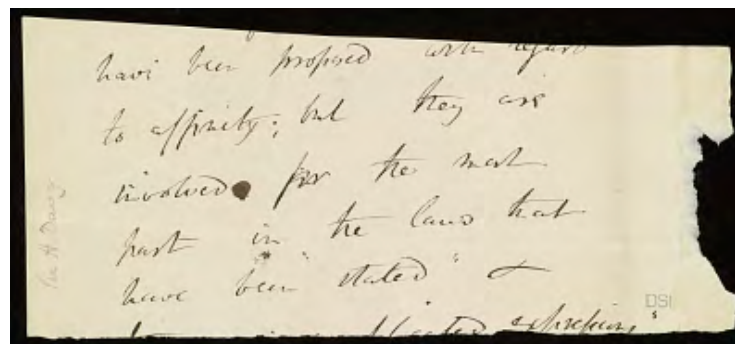 have been proposed with regard
to affinity; but they are
involved for the most
part in the laws that
have been "stated" &
expressions"
Sir H. Davy
DSI